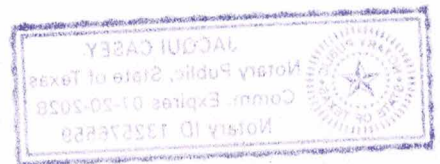 JACQUI CASEY
Notary Public, State of Texas
Comm. Expires 01-20-2028
Notary ID 132576559